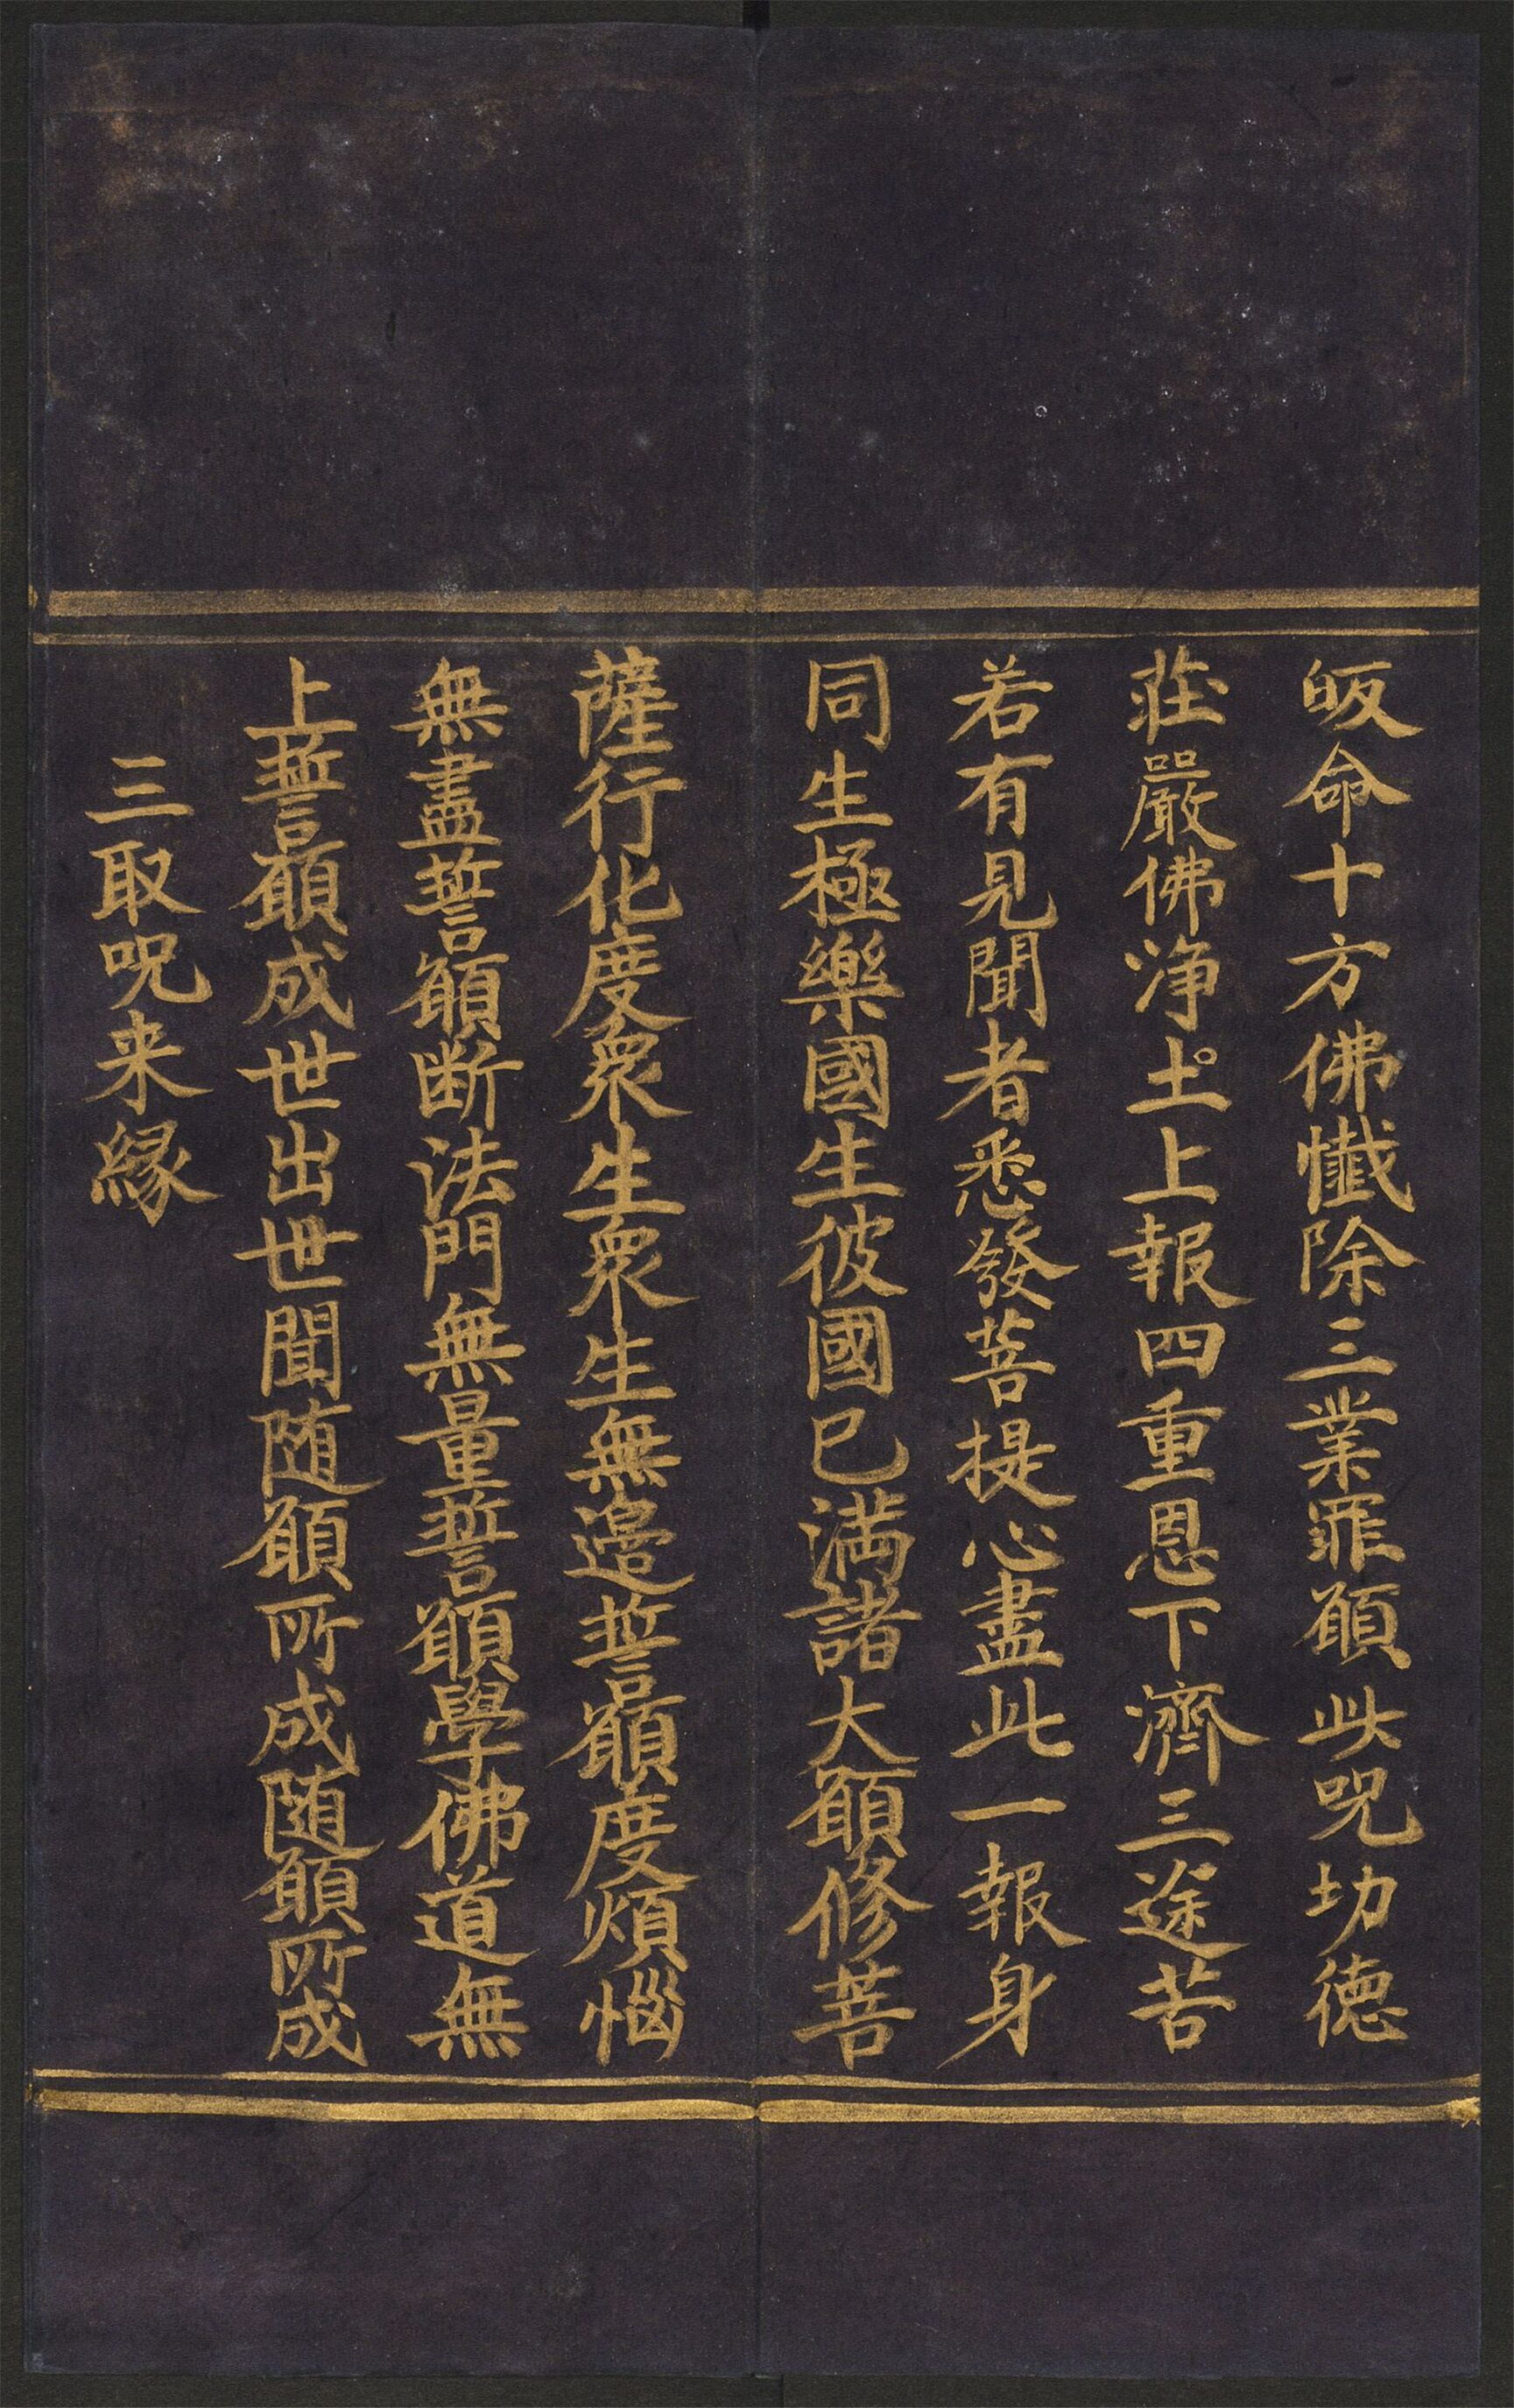 皈命十方佛懺除三業罪願此呪功德
莊嚴佛淨土上報四重恩下濟三途苦
若有見聞者悉發菩提心盡此一報身
同生極樂國生彼國已滿諸大願修菩
薩行化度衆生衆生無邊誓願度煩惱
無盡誓願断法門無量誓願學佛道無
上誓願成世出世間随願所成随願所成
三取呪来縁